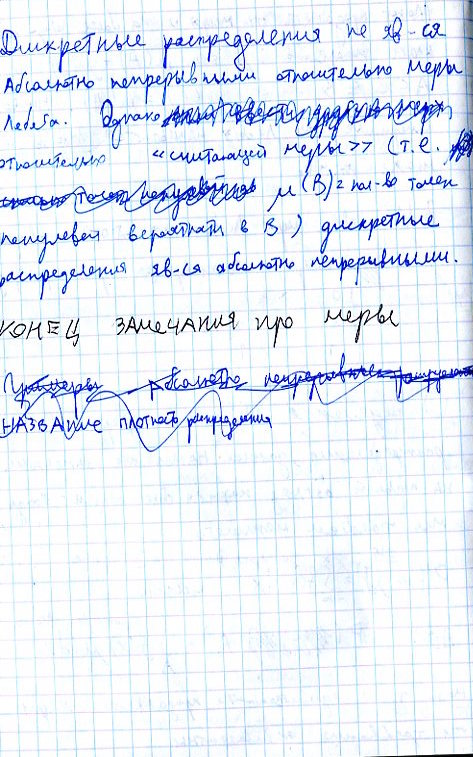 Дискретные распределения не яв-ся
абсолютно непрерывными относительно меры
Лебега. Однако
относительно «считающей меры>> (т.е.
μ(B)= кол-во точек
ненулевой вероятности в B) дискретные
распределения яв-ся абсолютно непрерывными.
КОНЕЦ ЗАМЕЧАНИЯ про меры
Примеры абсолютно непрерывных
НАЗВАНИЕ плотность распределения